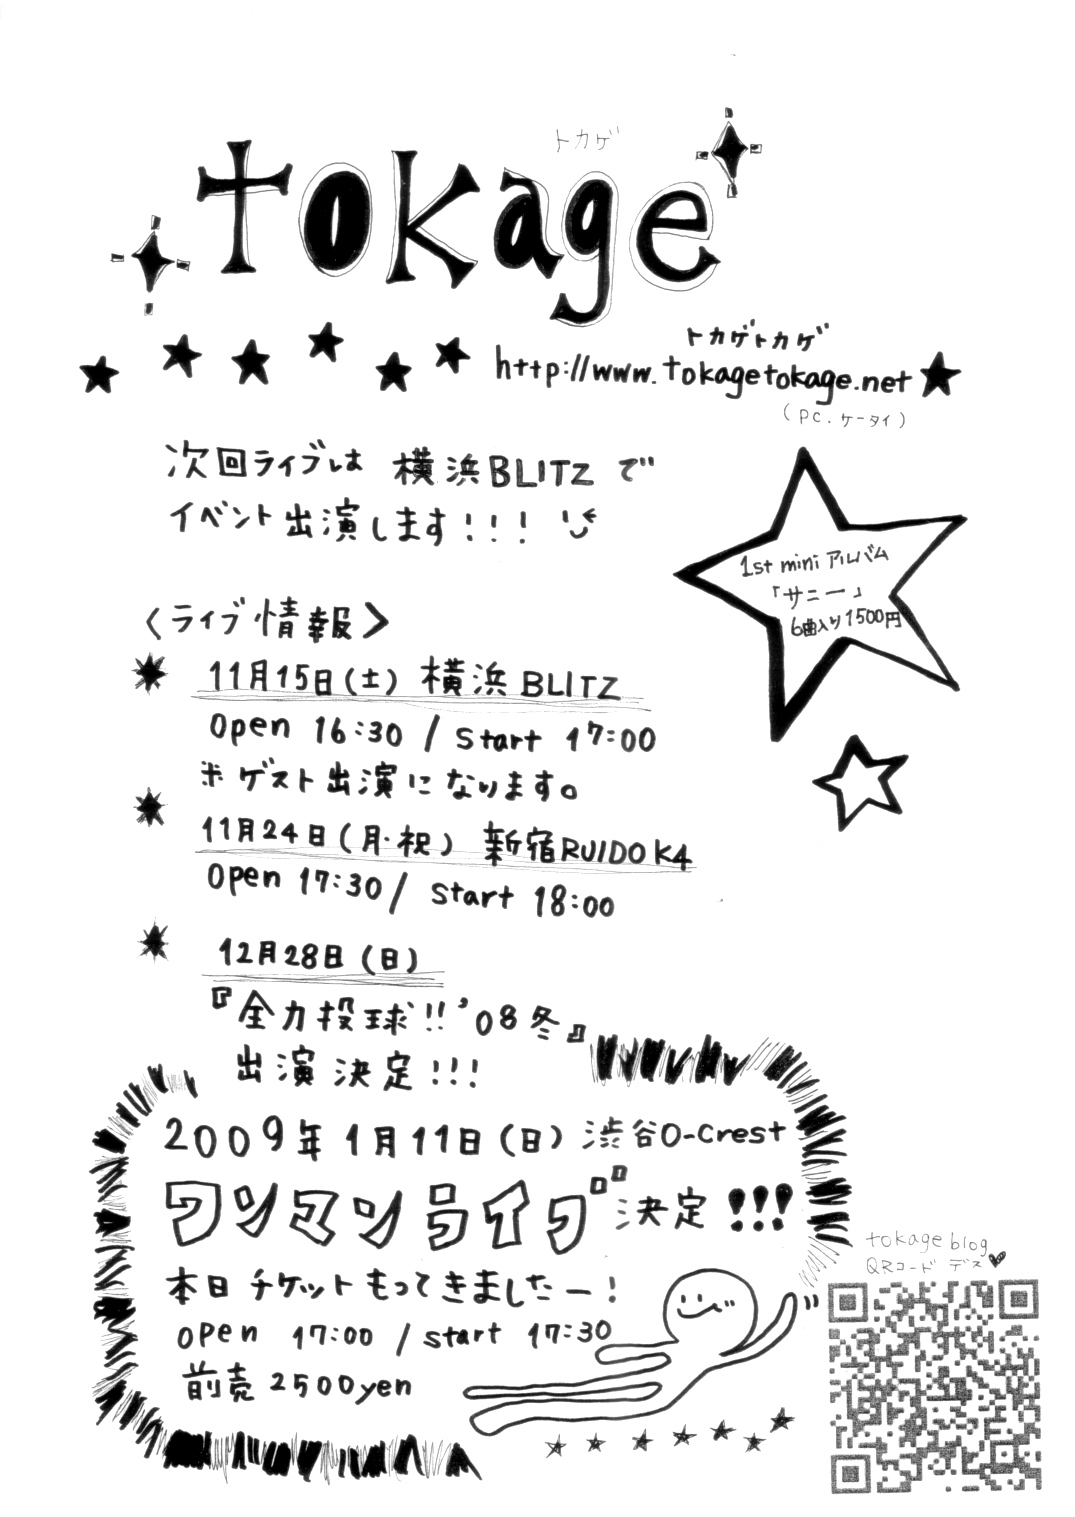 トカゲ
tokage
トカゲトカゲ
http://www.tokagetokage.net
(pc.ケータイ)
次回ライブは 横浜BLITZ で
イベント出演します!!!
1st mini アルバム
「サニー」
6曲入り1500円
〈ライブ情報〉
11月15日(土) 横浜 BLITZ
open 16:30 / start 17:00
※ゲスト出演になります。
11月24日(月・祝) 新宿RUIDO K4
open 17:30 / start 18:00
12月28日(日)
『全力投球!!'08冬』
出演決定!!!
2009年 1月11日(日) 渋谷O-Crest
ワンマンライブ決定!!!
本日チケットもってきましたー!
open 17:00 / start 17:30
前売 2500yen
tokage blog
QRコード デス